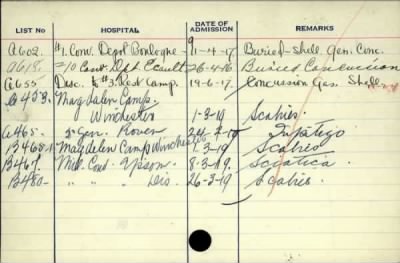 LIST NO HOSPITAL DATE OF ADMISSION REMARKS
A602. #1. Conv. Depot Boulogne - 9-4-17. Buried - Shell. Gen. Conc.
A618. #10 Conv. Dpt Ecault 26-4-16 Buried Concussion
A655 Disc. to #3. Rest Camp. 19-6-17. Concussion Gas. Shell
Magdalen Camp.
Winchester 1-3-19 Scabies.
A465. Gen. Rouen Impitigo
Magdalen Camp Winchester 1.3.19 Scabies
B467. Mil. Conv. Epsom. 8.3.19. Sciatica.
B480 - " " " Dis. 26-3-19 Scabies.